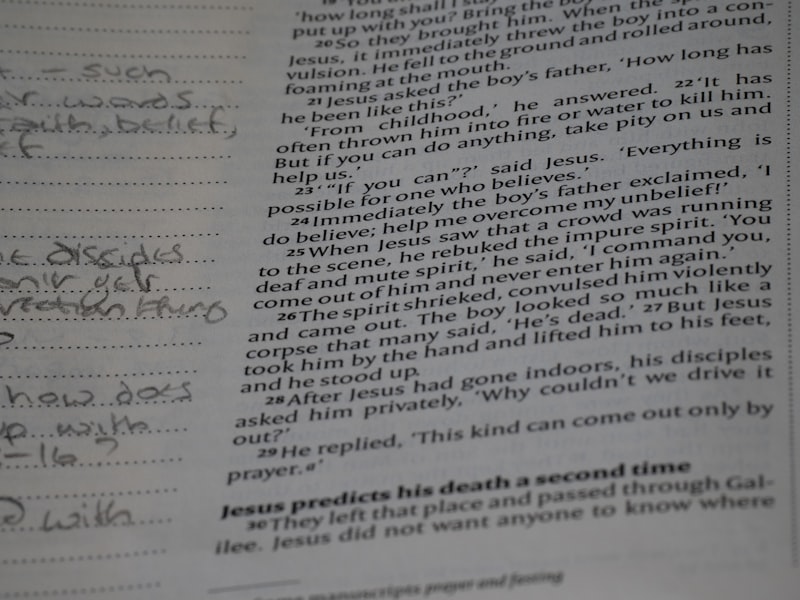 - such
words
faith, belief,
disciples
how does
up with
-16?
with
'how long shall I stay
put up with you? Bring the boy
20 So they brought him. When the
Jesus, it immediately threw the boy into a con-
vulsion. He fell to the ground and rolled around,
foaming at the mouth.
21 Jesus asked the boy's father, 'How long has
he been like this?'
'From childhood,' he answered. 22 'It has
often thrown him into fire or water to kill him.
But if you can do anything, take pity on us and
help us.'
23 '"If you can"?' said Jesus. 'Everything is
possible for one who believes.'
24 Immediately the boy's father exclaimed, 'I
do believe; help me overcome my unbelief!'
25 When Jesus saw that a crowd was running
to the scene, he rebuked the impure spirit. 'You
deaf and mute spirit,' he said, 'I command you,
come out of him and never enter him again.'
26 The spirit shrieked, convulsed him violently
and came out. The boy looked so much like a
corpse that many said, 'He's dead.' 27 But Jesus
took him by the hand and lifted him to his feet,
and he stood up.
28 After Jesus had gone indoors, his disciples
asked him privately, 'Why couldn't we drive it
out?'
29 He replied, 'This kind can come out only by
prayer.a'
Jesus predicts his death a second time
30 They left that place and passed through Gal-
ilee. Jesus did not want anyone to know where
manuscripts prayer and fasting